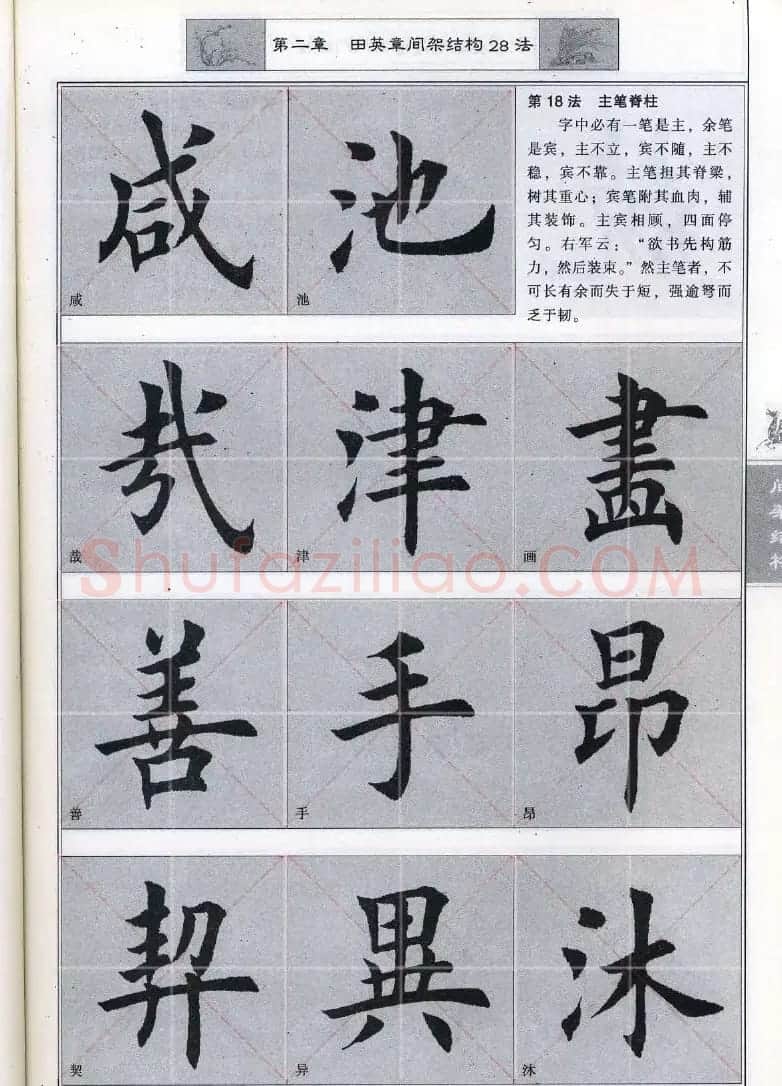 第二章 田英章间架结构28法
第18法 主笔脊柱
字中必有一笔是主，余笔
是宾，主不立，宾不随，主不
稳，宾不靠。主笔担其脊梁，
树其重心；宾笔附其血肉，辅
其装饰。主宾相顾，四面停
匀。右军云：“欲书先构筋
力，然后装束。”然主笔者，不
可长有余而失于短，强逾弩而
乏于韧。
咸 池
咸 池
哉 津 畫
哉 津 画
Shufaziliao.COM
善 手 昂
善 手 昂
契 異 沐
契 异 沐